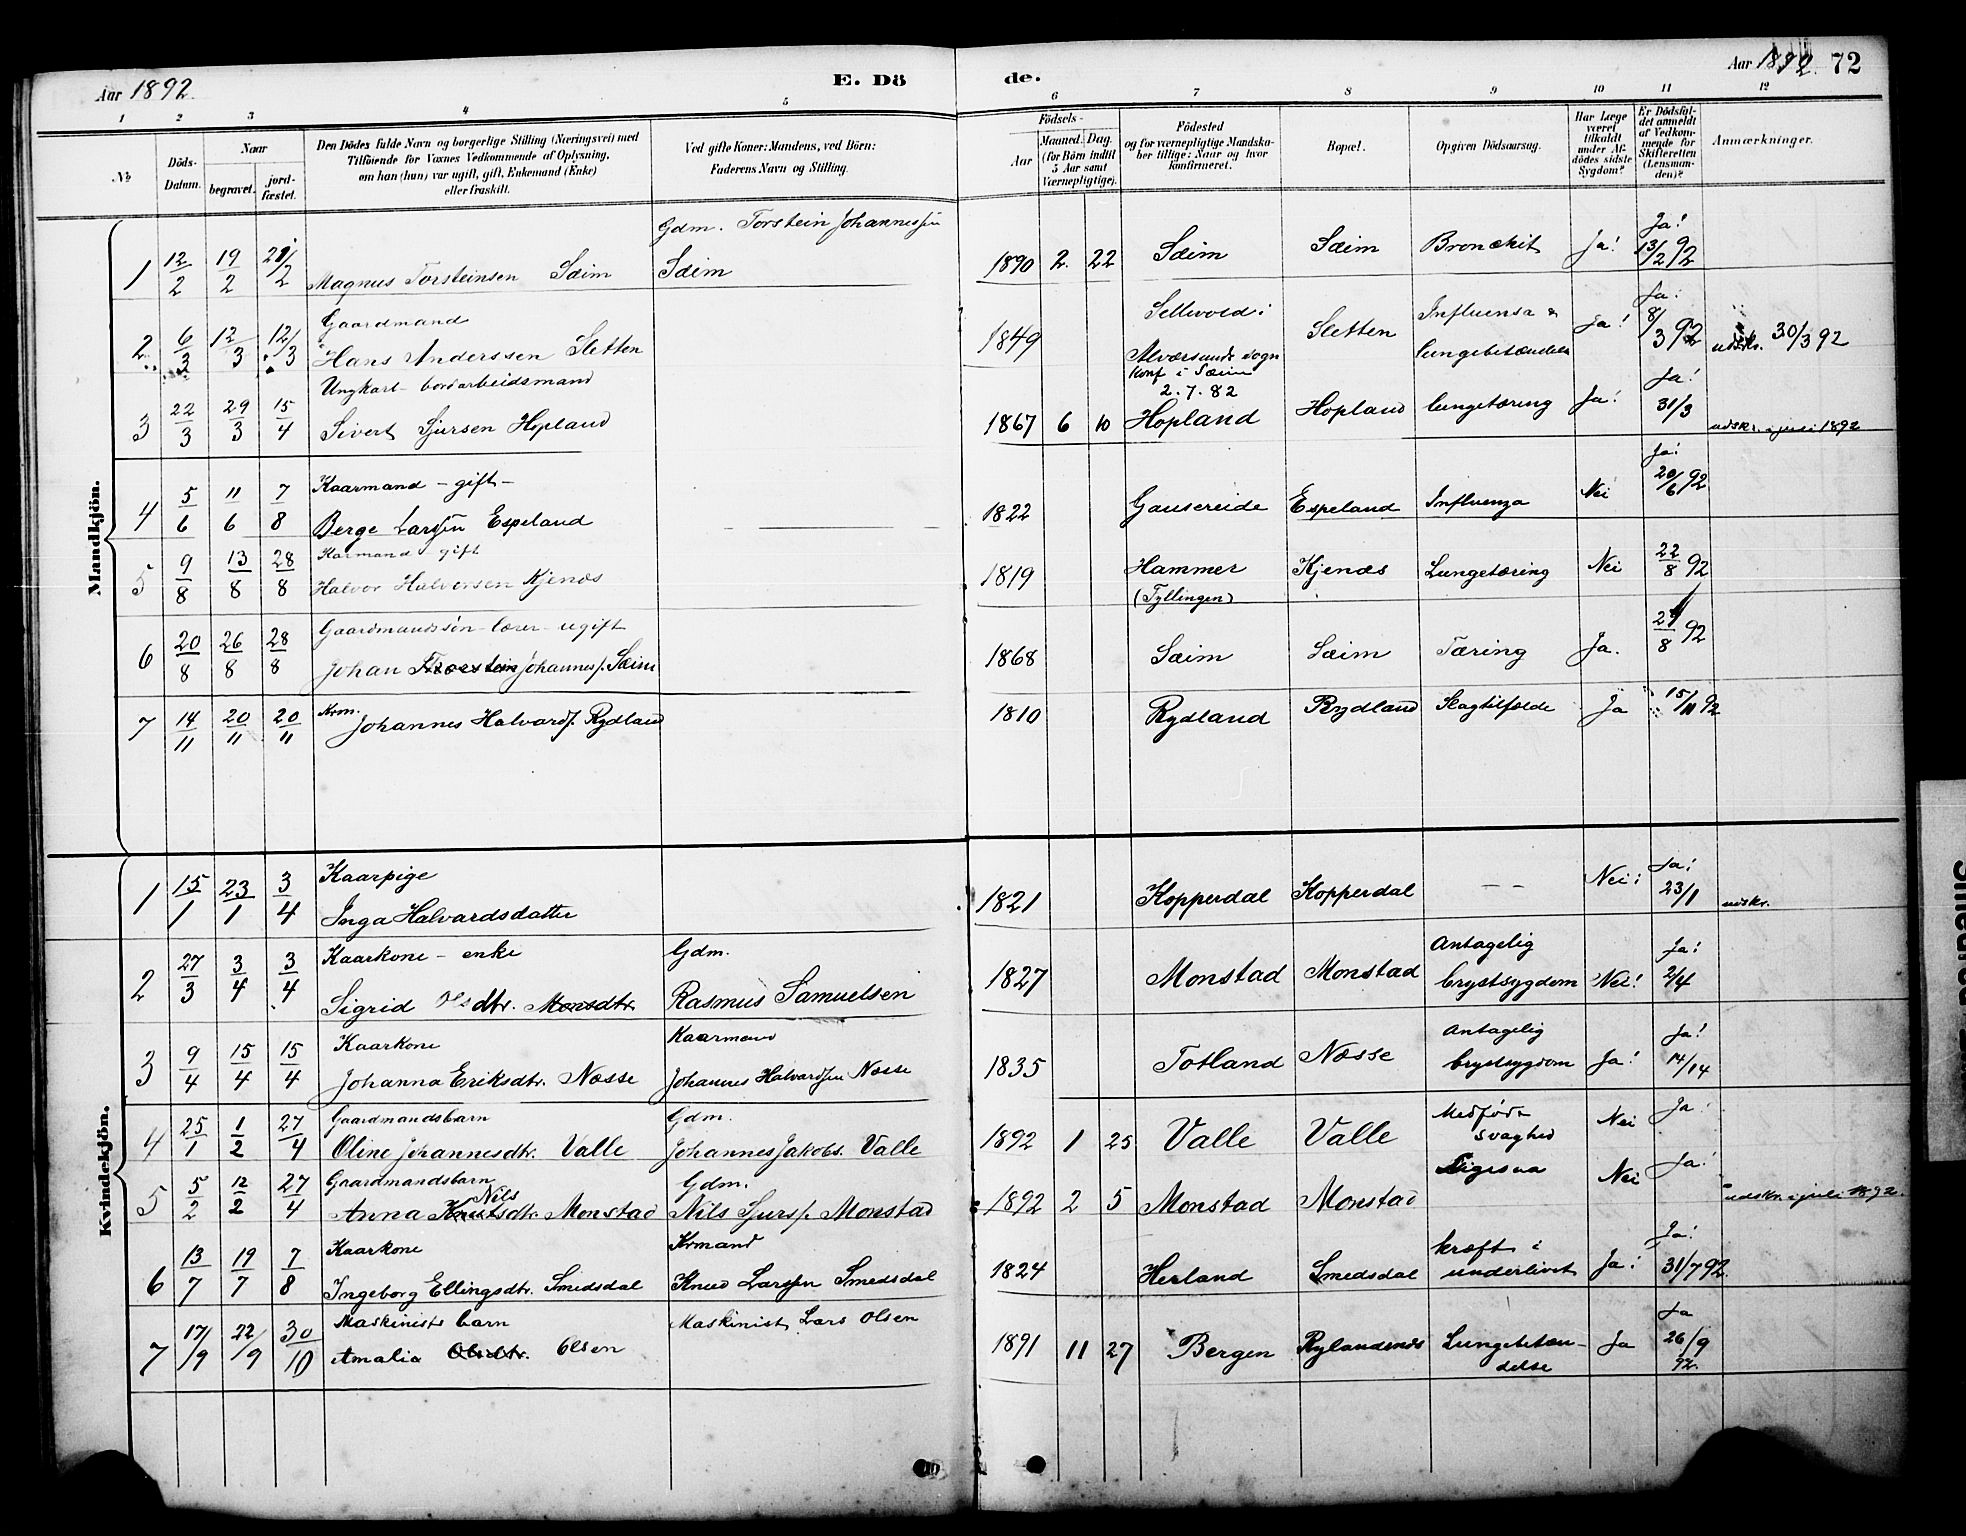 Aar 1892. E. Döde. Aar 1892. 72
1 2 3 4 5 6 7 8 9 10 11 12
No | Döds-Datum. | Naar begravet. | Naar jordfæstet. | Den Dödes fulde Navn og borgerlige Stilling (Næringsvei) med Tilföiende for Voxnes Vedkommende af Oplysning, om han (hun) var ugift, gift, Enkemand (Enke) eller fraskilt. | Ved gifte Koner: Mandens, ved Börn: Faderens Navn og Stilling. | Födsels- Aar | Maaned. Dag. (for Börn indtil 5 Aar samt Værnepligtige). | Födested og for værnepligtige Mandskaber tillige: Naar og hvor konfirmeret. | Bopæl. | Opgiven Dödsaarsag. | Har Læge været tilkaldt under Afdödes sidste Sygdom? | Er Dödsfaldet anmeldt af Vedkommende for Skifteretten (Lensmanden)? | Anmærkninger.
Mandkjön.
1 | 12/2 | 19/2 | 21/2 | Magnus Torsteinsen Sæim | Gdm. Torstein Johannessen Sæim | 1890 | 2. | 22 | Sæim | Sæim | Bronckit | Ja! | Ja! 13/2 92
2 | 6/3 | 12/3 | 12/3 | Gaardmand Hans Anderssen Sletten | 1849 | Sellevold i Alværsunds sogn | Sletten | Influensa & lungebetændelse | Ja! | Ja! 8/3 92 | udskr. 30/3 92
3 | 22/3 | 29/3 | 15/4 | Ungkarl - bordarbeidsmand Sivert Sjursen Hopland | 1867 | 6 | 10 | Konf i Sæim 2.7.82 Hopland | Hopland | lungetæring | Ja! | Ja! 31/3 | udskr. i juli 1892
4 | 5/6 | 11/6 | 7/8 | Kaarmand - gift - Berge Larssen Espeland | 1822 | Gausereide | Espeland | Influenza | Nei | Ja! 20/6 92
5 | 9/8 | 13/8 | 28/8 | Karmand gift Halvor Halvorsen Kjenæs | 1819 | Hammer (Tyllingen) | Kjenæs | Lungetæring | Nei | 22/8 92
6 | 20/8 | 26/8 | 28/8 | Gaardmandssön - lærer - ugift Johan Johannes. Sæim | 1868 | Sæim | Sæim | Tæring | Ja. | 8 92
7 | 14/11 | 20/11 | 20/11 | Krm. Johannes Halvards. Rydland | 1810 | Rydland | Rydland | Slagtilfælde | Ja | 15/11 92
Kvindekjön.
1 | 15/1 | 23/1 | 3/4 | Kaarpige Inga Halvardsdatter | 1821 | Kopperdal | Kopperdal | - - | Nei! | Ja! 23/1 | udskr.
2 | 27/3 | 3/4 | 3/4 | Kaarkone - enke Sigrid Olsdtr. Monsdtr | Gdm. Rasmus Samuelsen | 1827 | Monstad | Monstad | Antagelig brystsygdom | Nei! | Ja! 2/4
3 | 9/4 | 15/4 | 15/4 | Kaarkone Johanna Eriksdtr. Næsse | Kaarmand Johannes Halvardsen Næsse | 1835 | Totland | Næsse | Antagelig brystsygdom | Ja! | Ja! 14/14
4 | 25/1 | 1/2 | 27/4 | Gaardmandsbarn Oline Johannesdtr. Valle | Gdm. Johannes Jakobs. Valle | 1892 | 1 | 25 | Valle | Valle | Medfödt svaghed | Nei | Ja!
5 | 5/2 | 12/2 | 27/4 | Gaardmandsbarn Anna Knutsdtr. Nils Monstad | Gdm. Nils Sjurs. Monstad | 1892 | 2 | 5 | Monstad | Monstad | Ligesaa | Nei | Ja! | udskr. i juli 1892.
6 | 13/7 | 19/7 | 7/8 | Kaarkone Ingeborg Ellingsdtr. Smedsdal | Krmand Knud Larssen Smedsdal | 1824 | Herland | Smedsdal | kræft i underlivet | Ja! | Ja! 31/7 92
7 | 17/9 | 22/9 | 30/10 | Maskinists barn Amalia Olsdtr. Olsen | Maskinist Lars Olsen | 1891 | 11 | 27 | Bergen | Rylandenæs | Lungebetændelse | Ja | Ja 26/9 92.